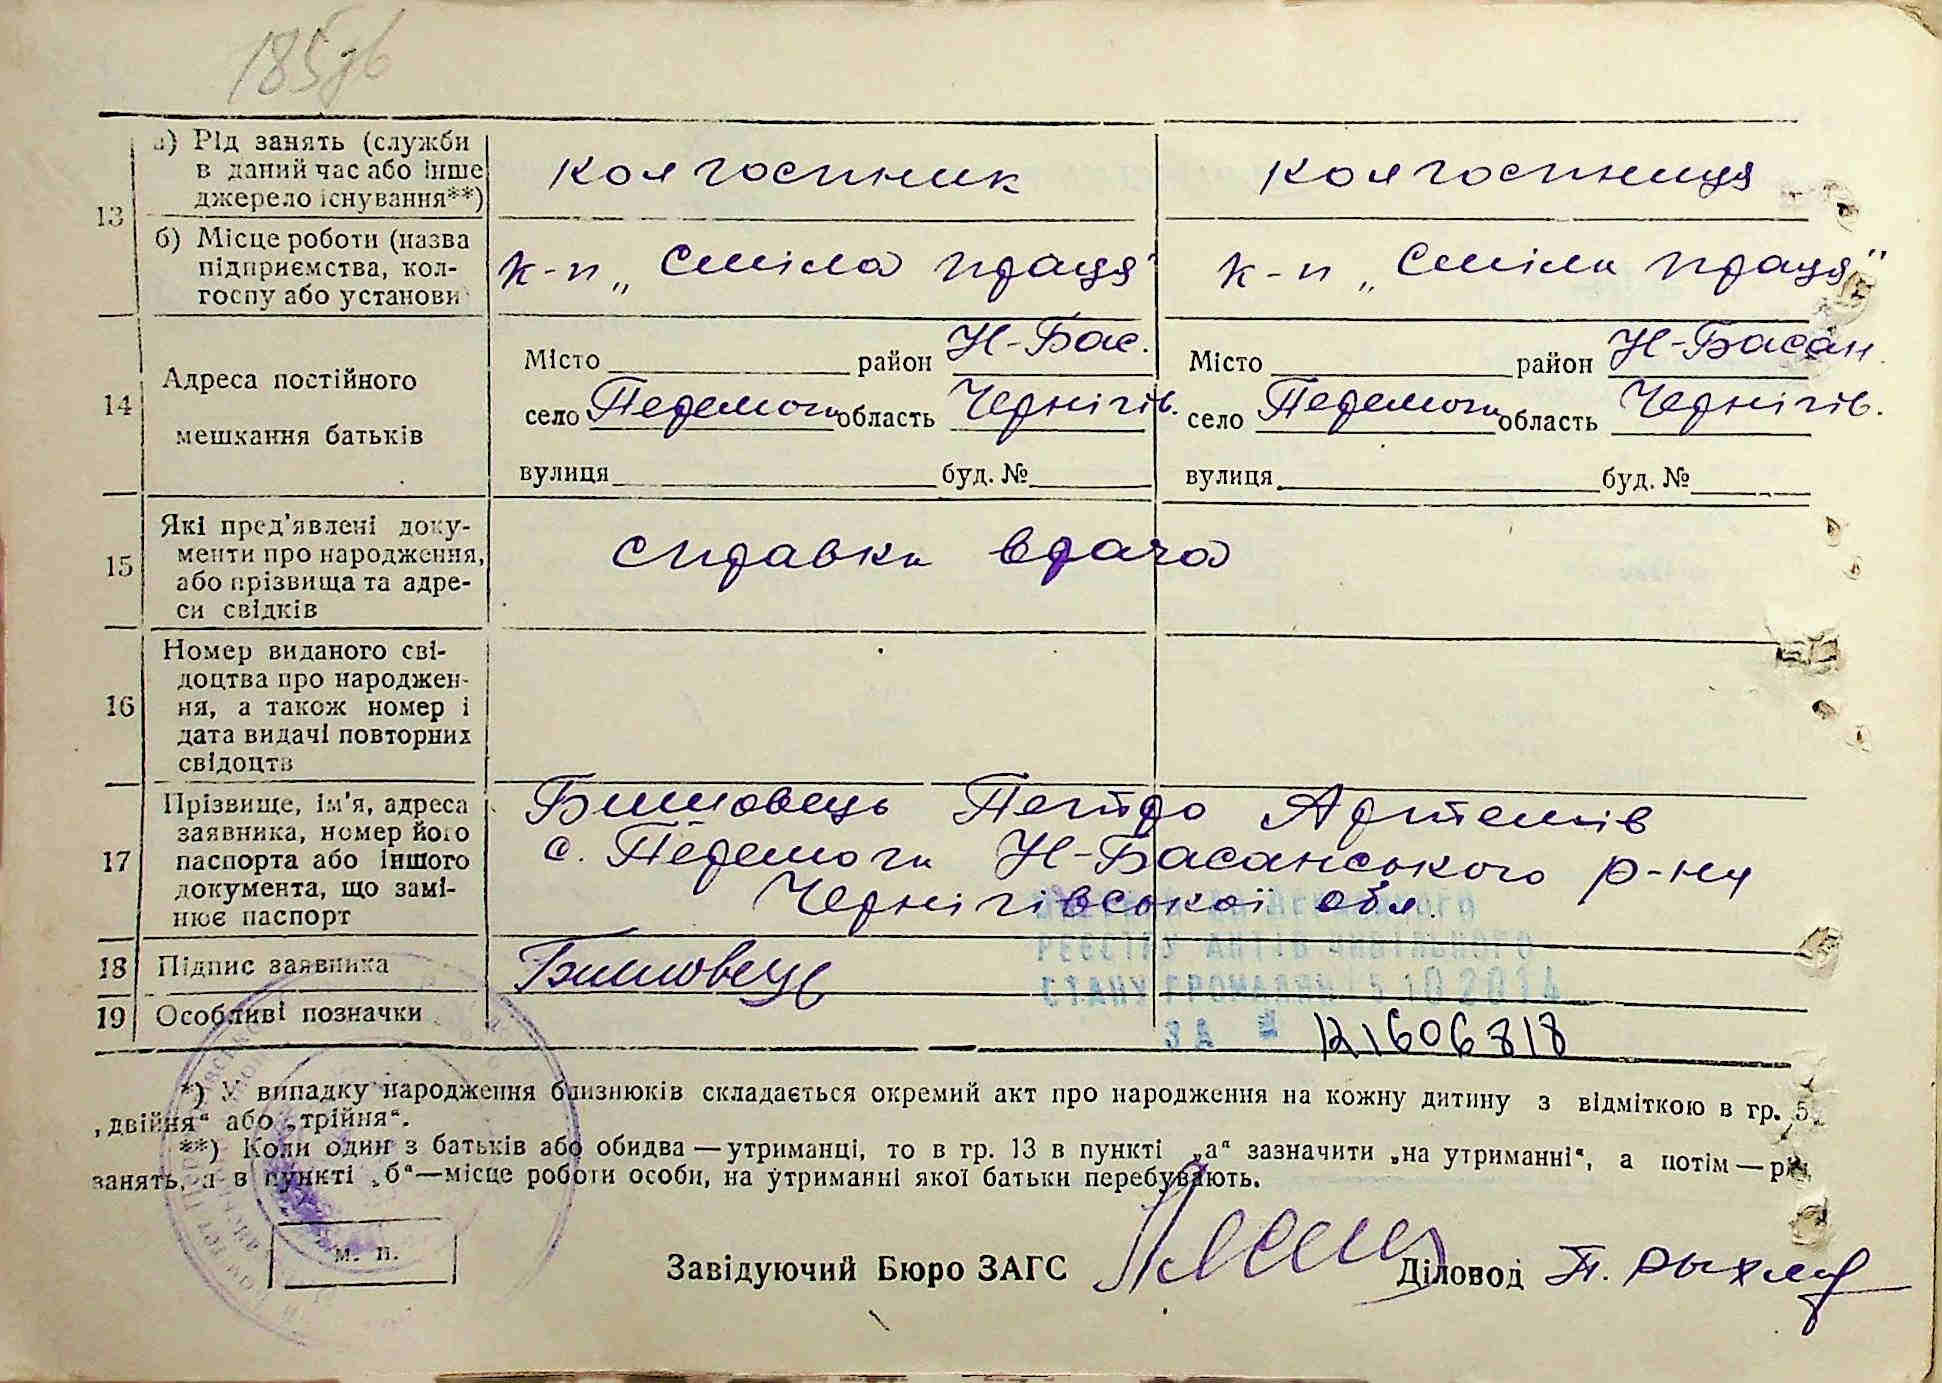 185 зв
а) Рід занять (служби в даний час або інше джерело існування**)
колгоспник
колгоспниця
13
б) Місце роботи (назва підприємства, колгоспу або установи
к-п „Сміла праця"
к-п „Сміла праця"
14
Адреса постійного
мешкання батьків
Місто район Н-Бас.
село Перемога область Чернігів.
вулиця буд. №
Місто район Н-Басан
село Перемога область Чернігів.
вулиця буд. №
15
Які пред'явлені доку-
менти про народження,
або прізвища та адре-
си свідків
справка врача
16
Номер виданого сві-
доцтва про народжен-
ня, а також номер і
дата видачі повторних
свідоцтв
17
Прізвище, ім'я, адреса
заявника, номер його
паспорта або іншого
документа, що замі-
нює паспорт
Бишовець Петро Артемів
с. Перемога Н-Басанського р-ну
Чернігівської обл.
18 Підпис заявника
Бишовець
19 Особливі позначки
РЕЄСТРУ АКТІВ ЦИВІЛЬНОГО
СТАНУ ГРОМАДЯН 15 10 2014
ЗА №
*) У випадку народження близнюків складається окремий акт про народження на кожну дитину з відміткою в гр. 5
„двійня“ або „трійня“.
**) Коли один з батьків або обидва — утриманці, то в гр. 13 в пункті „а“ зазначити „на утриманні“, а потім — рід
занять, а в пункті „б“—місце роботи особи, на утриманні якої батьки перебувають.
м. п.
Завідуючий Бюро ЗАГС
Діловод